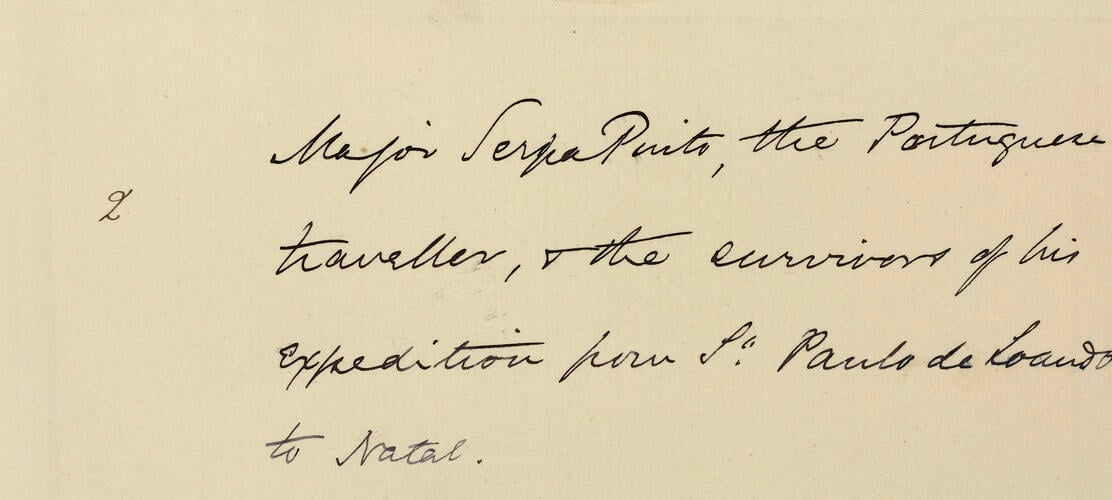 Major Serpa Pinto, the Portuguese
2
traveller, & the survivors of his
expedition from S.ᵃ Paulo de Loando
to Natal.